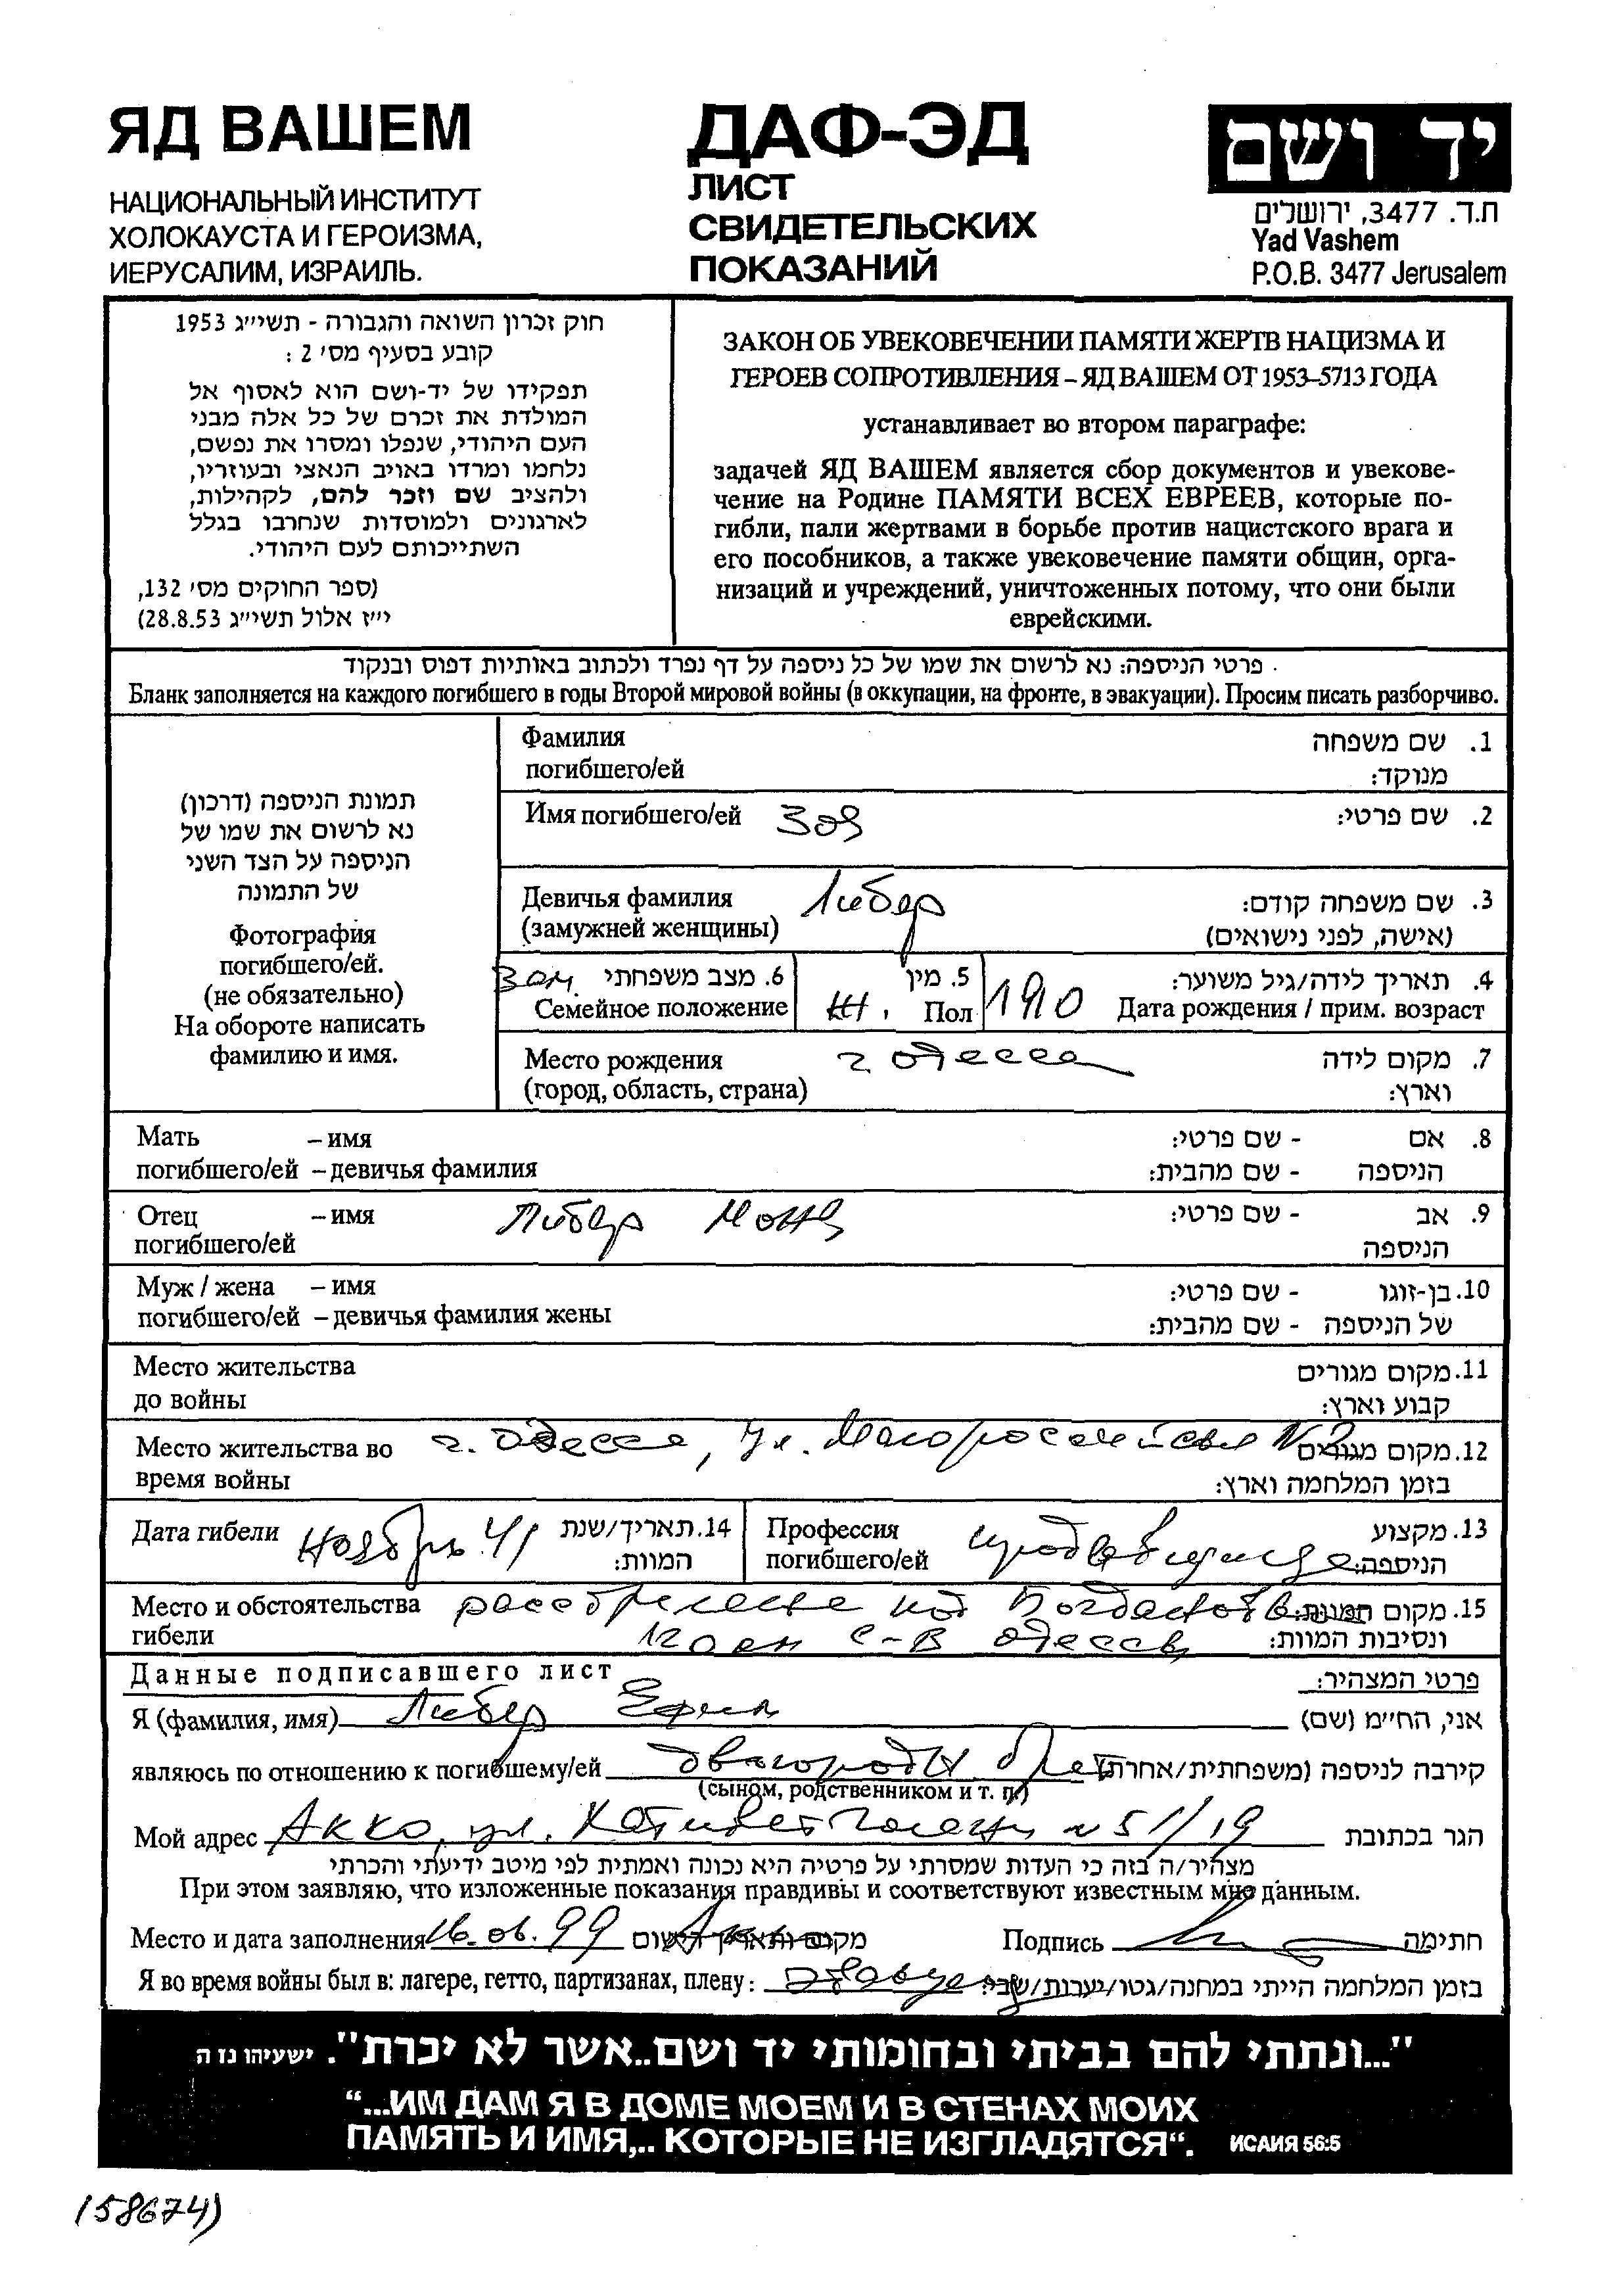 ЯД ВАШЕМ
НАЦИОНАЛЬНЫЙ ИНСТИТУТ
ХОЛОКАУСТА И ГЕРОИЗМА,
ИЕРУСАЛИМ, ИЗРАИЛЬ.
ДАФ-ЭД
ЛИСТ
СВИДЕТЕЛЬСКИХ
ПОКАЗАНИЙ
יד ושם
ת.ד. 3477, ירושלים
Yad Vashem
P.O.B. 3477 Jerusalem
חוק זכרון השואה והגבורה - תשי״ג 1953
קובע בסעיף מס׳ 2 :
תפקידו של יד-ושם הוא לאסוף אל
המולדת את זכרם של כל אלה מבני
העם היהודי, שנפלו ומסרו את נפשם,
נלחמו ומרדו באויב הנאצי ובעוזריו,
ולהציב שם וזכר להם, לקהילות,
לארגונים ולמוסדות שנחרבו בגלל
השתייכותם לעם היהודי.
(ספר החוקים מס׳ 132,
י״ז אלול תשי״ג 28.8.53)
ЗАКОН ОБ УВЕКОВЕЧЕНИИ ПАМЯТИ ЖЕРТВ НАЦИЗМА И
ГЕРОЕВ СОПРОТИВЛЕНИЯ – ЯД ВАШЕМ ОТ 1953–5713 ГОДА
устанавливает во втором параграфе:
задачей ЯД ВАШЕМ является сбор документов и увекове-
чение на Родине ПАМЯТИ ВСЕХ ЕВРЕЕВ, которые по-
гибли, пали жертвами в борьбе против нацистского врага и
его пособников, а также увековечение памяти общин, орга-
низаций и учреждений, уничтоженных потому, что они были
еврейскими.
פרטי הניספה: נא לרשום את שמו של כל ניספה על דף נפרד ולכתוב באותיות דפוס ובנקוד
Бланк заполняется на каждого погибшего в годы Второй мировой войны (в оккупации, на фронте, в эвакуации). Просим писать разборчиво.
תמונת הניספה (דרכון)
נא לרשום את שמו של
הניספה על הצד השני
של התמונה
Фотография
погибшего/ей.
(не обязательно)
На обороте написать
фамилию и имя.
Фамилия 1. שם משפחה
погибшего/ей מנוקד:
Имя погибшего/ей Зоя 2. שם פרטי:
Девичья фамилия Либер 3. שם משפחה קודם:
(замужней женщины) (אישה, לפני נישואים)
Зам. 6. מצב משפחתי 5. מין 4. תאריך לידה/גיל משוער:
Семейное положение Ж. Пол 1910 Дата рождения / прим. возраст
Место рождения г. Одесса 7. מקום לידה
(город, область, страна) וארץ:
Мать – имя 8. אם - שם פרטי:
погибшего/ей – девичья фамилия הניספה - שם מהבית:
Отец – имя Либер 9. אב - שם פרטי:
погибшего/ей הניספה
Муж / жена – имя 10. בן-זוגו - שם פרטי:
погибшего/ей – девичья фамилия жены של הניספה - שם מהבית:
Место жительства 11. מקום מגורים
до войны קבוע וארץ:
Место жительства во г. Одесса, ул. Малороссийская 12. מקום מגורים
время войны בזמן המלחמה וארץ:
Дата гибели Ноябрь 41 14. תאריך/שנת המוות: Профессия продавщица 13. מקצוע
погибшего/ей הניספה:
Место и обстоятельства расстреляна под 15. מקום המוות:
гибели ונסיבות המוות:
Данные подписавшего лист פרטי המצהיר:
Я (фамилия, имя) Либер Ефим אני, הח״מ (שם)
являюсь по отношению к погибшему/ей двоюродн. брат קירבה לניספה (משפחתית/אחרת)
(сыном, родственником и т. п.)
Мой адрес Акко, ул. Хативет Голани 51/19 הגר בכתובת
מצהיר/ה בזה כי העדות שמסרתי על פרטיה היא נכונה ואמתית לפי מיטב ידיעתי והכרתי
При этом заявляю, что изложенные показания правдивы и соответствуют известным мне данным.
Место и дата заполнения 16.06.99 מקום ותאריך רישום Подпись חתימה
Я во время войны был в: лагере, гетто, партизанах, плену: בזמן המלחמה הייתי במחנה/גטו/יערות/שבי:
"...ונתתי להם בביתי ובחומותי יד ושם..אשר לא יכרת". ישעיהו נז ה
“...ИМ ДАМ Я В ДОМЕ МОЕМ И В СТЕНАХ МОИХ
ПАМЯТЬ И ИМЯ,.. КОТОРЫЕ НЕ ИЗГЛАДЯТСЯ“. ИСАИЯ 56:5
(58674)